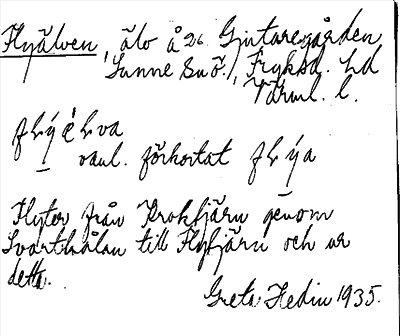 Flyälven, älv å 2c Gjutaregården
Sunne Sn ö., Fryksd. hd
Värml. l.
flýèlva
vanl. förkortat flýa
Flyter från Krokfjärn genom
Svarthålan till Flyfjärn och ur
detta.
Greta Hedin 1935.